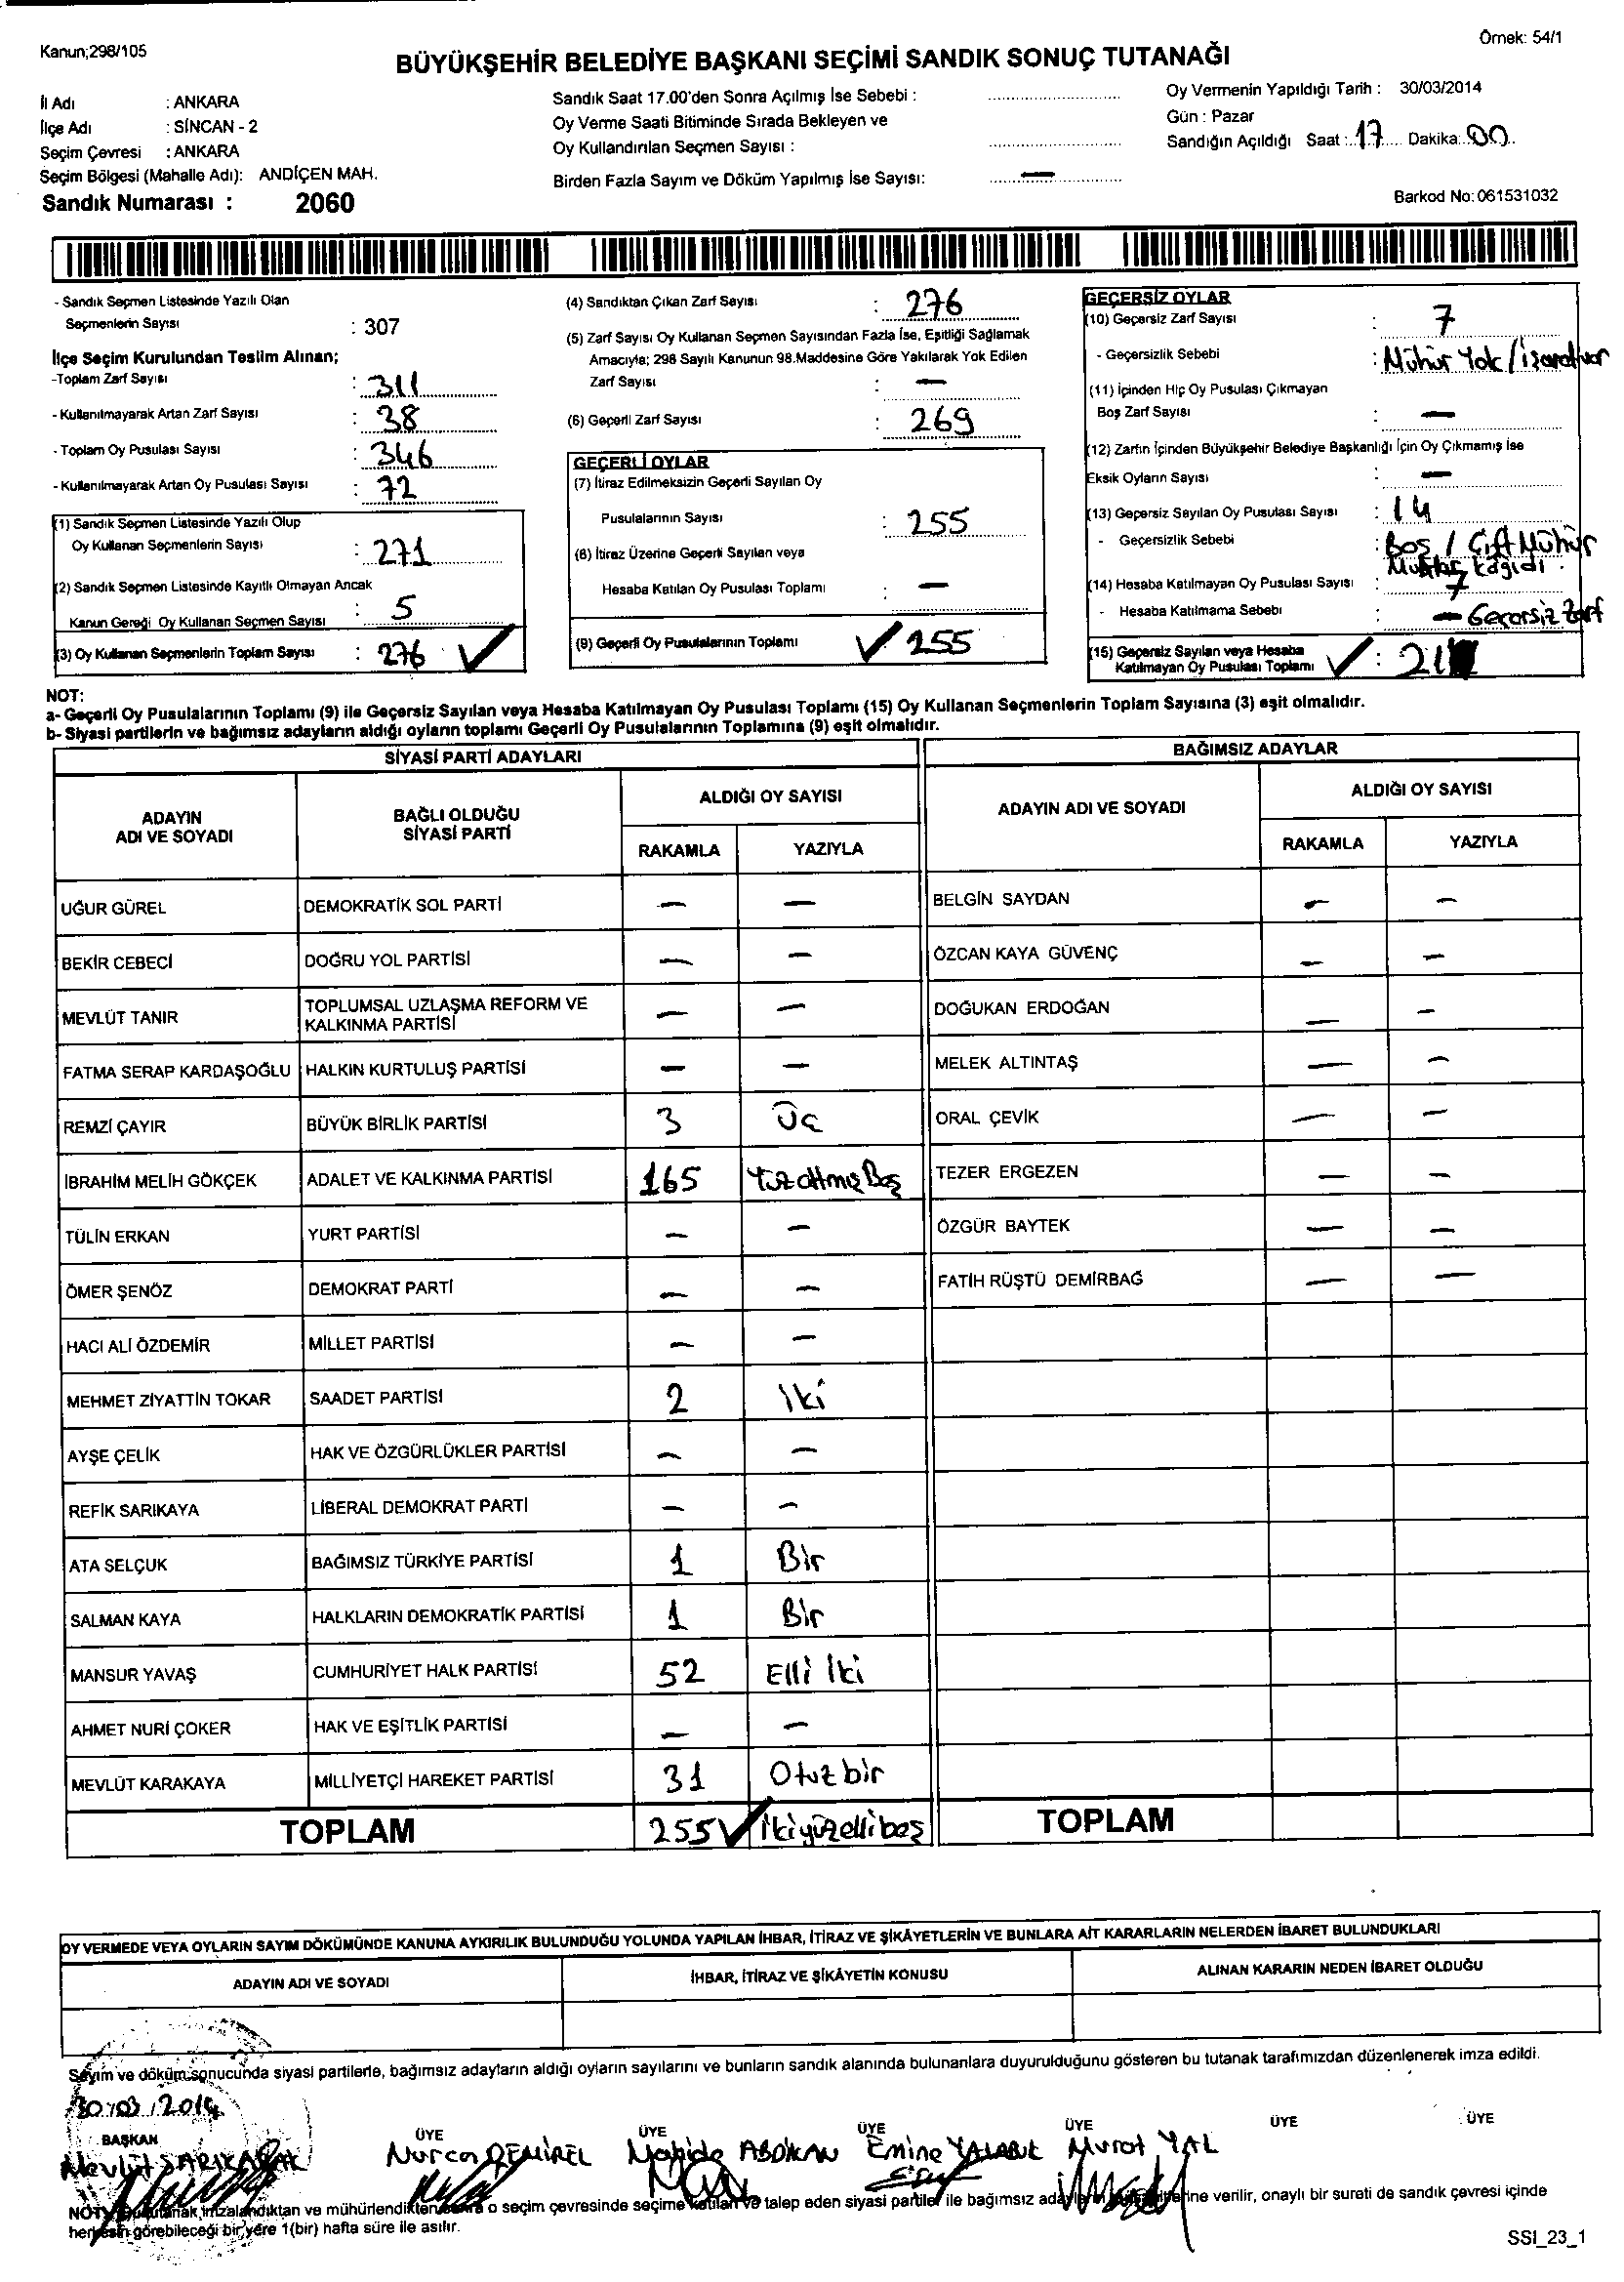 Kanun;298/105
Örnek: 54/1
BÜYÜKŞEHİR BELEDİYE BAŞKANI SEÇİMİ SANDIK SONUÇ TUTANAĞI
İl Adı : ANKARA
İlçe Adı : SİNCAN - 2
Seçim Çevresi : ANKARA
Seçim Bölgesi (Mahalle Adı): ANDİÇEN MAH.
Sandık Numarası : 2060
Sandık Saat 17.00'den Sonra Açılmış İse Sebebi :
Oy Verme Saati Bitiminde Sırada Bekleyen ve
Oy Kullandırılan Seçmen Sayısı :
Birden Fazla Sayım ve Döküm Yapılmış İse Sayısı: —
Oy Vermenin Yapıldığı Tarih : 30/03/2014
Gün : Pazar
Sandığın Açıldığı Saat : 17 Dakika: 00
Barkod No: 061531032
- Sandık Seçmen Listesinde Yazılı Olan
Seçmenlerin Sayısı : 307
İlçe Seçim Kurulundan Teslim Alınan;
-Toplam Zarf Sayısı : 311
- Kullanılmayarak Artan Zarf Sayısı : 38
- Toplam Oy Pusulası Sayısı : 346
- Kullanılmayarak Artan Oy Pusulası Sayısı : 72
(1) Sandık Seçmen Listesinde Yazılı Olup
Oy Kullanan Seçmenlerin Sayısı : 271
(2) Sandık Seçmen Listesinde Kayıtlı Olmayan Ancak
Kanun Gereği Oy Kullanan Seçmen Sayısı : 5
(3) Oy Kullanan Seçmenlerin Toplam Sayısı : 276 ✓
(4) Sandıktan Çıkan Zarf Sayısı : 276
(5) Zarf Sayısı Oy Kullanan Seçmen Sayısından Fazla İse, Eşitliği Sağlamak
Amacıyla; 298 Sayılı Kanunun 98.Maddesine Göre Yakılarak Yok Edilen
Zarf Sayısı : —
(6) Geçerli Zarf Sayısı : 269
GEÇERLİ OYLAR
(7) İtiraz Edilmeksizin Geçerli Sayılan Oy
Pusulalarının Sayısı : 255
(8) İtiraz Üzerine Geçerli Sayılan veya
Hesaba Katılan Oy Pusulası Toplamı : —
(9) Geçerli Oy Pusulalarının Toplamı ✓ 255
GEÇERSİZ OYLAR
(10) Geçersiz Zarf Sayısı : 7
- Geçersizlik Sebebi : Mühür Yok /
(11) İçinden Hiç Oy Pusulası Çıkmayan
Boş Zarf Sayısı : —
(12) Zarfın İçinden Büyükşehir Belediye Başkanlığı İçin Oy Çıkmamış İse
Eksik Oyların Sayısı : —
(13) Geçersiz Sayılan Oy Pusulası Sayısı : 14
- Geçersizlik Sebebi : Boş / Çift Mühür
Muhtar kağıdı
(14) Hesaba Katılmayan Oy Pusulası Sayısı : 7
- Hesaba Katılmama Sebebi : — Geçersiz Zarf
(15) Geçersiz Sayılan veya Hesaba
Katılmayan Oy Pusulası Toplamı ✓ : 21
NOT:
a- Geçerli Oy Pusulalarının Toplamı (9) ile Geçersiz Sayılan veya Hesaba Katılmayan Oy Pusulası Toplamı (15) Oy Kullanan Seçmenlerin Toplam Sayısına (3) eşit olmalıdır.
b- Siyasi partilerin ve bağımsız adayların aldığı oyların toplamı Geçerli Oy Pusulalarının Toplamına (9) eşit olmalıdır.
SİYASİ PARTİ ADAYLARI
ADAYIN ADI VE SOYADI BAĞLI OLDUĞU SİYASİ PARTİ ALDIĞI OY SAYISI
RAKAMLA YAZIYLA
UĞUR GÜREL DEMOKRATİK SOL PARTİ — —
BEKİR CEBECİ DOĞRU YOL PARTİSİ — —
MEVLÜT TANIR TOPLUMSAL UZLAŞMA REFORM VE KALKINMA PARTİSİ — —
FATMA SERAP KARDAŞOĞLU HALKIN KURTULUŞ PARTİSİ — —
REMZİ ÇAYIR BÜYÜK BİRLİK PARTİSİ 3 Üç
İBRAHİM MELİH GÖKÇEK ADALET VE KALKINMA PARTİSİ 165 Yüz altmış Beş
TÜLİN ERKAN YURT PARTİSİ — —
ÖMER ŞENÖZ DEMOKRAT PARTİ — —
HACI ALİ ÖZDEMİR MİLLET PARTİSİ — —
MEHMET ZİYATTİN TOKAR SAADET PARTİSİ 2 İki
AYŞE ÇELİK HAK VE ÖZGÜRLÜKLER PARTİSİ — —
REFİK SARIKAYA LİBERAL DEMOKRAT PARTİ — —
ATA SELÇUK BAĞIMSIZ TÜRKİYE PARTİSİ 1 Bir
SALMAN KAYA HALKLARIN DEMOKRATİK PARTİSİ 1 Bir
MANSUR YAVAŞ CUMHURİYET HALK PARTİSİ 52 Elli İki
AHMET NURİ ÇOKER HAK VE EŞİTLİK PARTİSİ — —
MEVLÜT KARAKAYA MİLLİYETÇİ HAREKET PARTİSİ 31 Otuz bir
TOPLAM 255 ✓ İkiyüzellibeş
BAĞIMSIZ ADAYLAR
ADAYIN ADI VE SOYADI ALDIĞI OY SAYISI
RAKAMLA YAZIYLA
BELGİN SAYDAN — —
ÖZCAN KAYA GÜVENÇ — —
DOĞUKAN ERDOĞAN — —
MELEK ALTINTAŞ — —
ORAL ÇEVİK — —
TEZER ERGEZEN — —
ÖZGÜR BAYTEK — —
FATİH RÜŞTÜ DEMİRBAĞ — —
TOPLAM
OY VERMEDE VEYA OYLARIN SAYIM DÖKÜMÜNDE KANUNA AYKIRILIK BULUNDUĞU YOLUNDA YAPILAN İHBAR, İTİRAZ VE ŞİKÂYETLERİN VE BUNLARA AİT KARARLARIN NELERDEN İBARET BULUNDUKLARI
ADAYIN ADI VE SOYADI İHBAR, İTİRAZ VE ŞİKÂYETİN KONUSU ALINAN KARARIN NEDEN İBARET OLDUĞU
Sayım ve döküm sonucunda siyasi partilerle, bağımsız adayların aldığı oyların sayılarını ve bunların sandık alanında bulunanlara duyurulduğunu gösteren bu tutanak tarafımızdan düzenlenerek imza edildi.
30/03/2014
BAŞKAN ÜYE ÜYE ÜYE ÜYE ÜYE ÜYE
Mevlüt Nurcan DEMİREL Emine Murat YAL
NOT: Bu tutanak imzalandıktan ve mühürlendikten sonra o seçim çevresinde seçime katılan ve talep eden siyasi partiler ile bağımsız adayların verilir, onaylı bir sureti de sandık çevresi içinde
herkesin görebileceği bir yere 1(bir) hafta süre ile asılır.
SSI_23_1